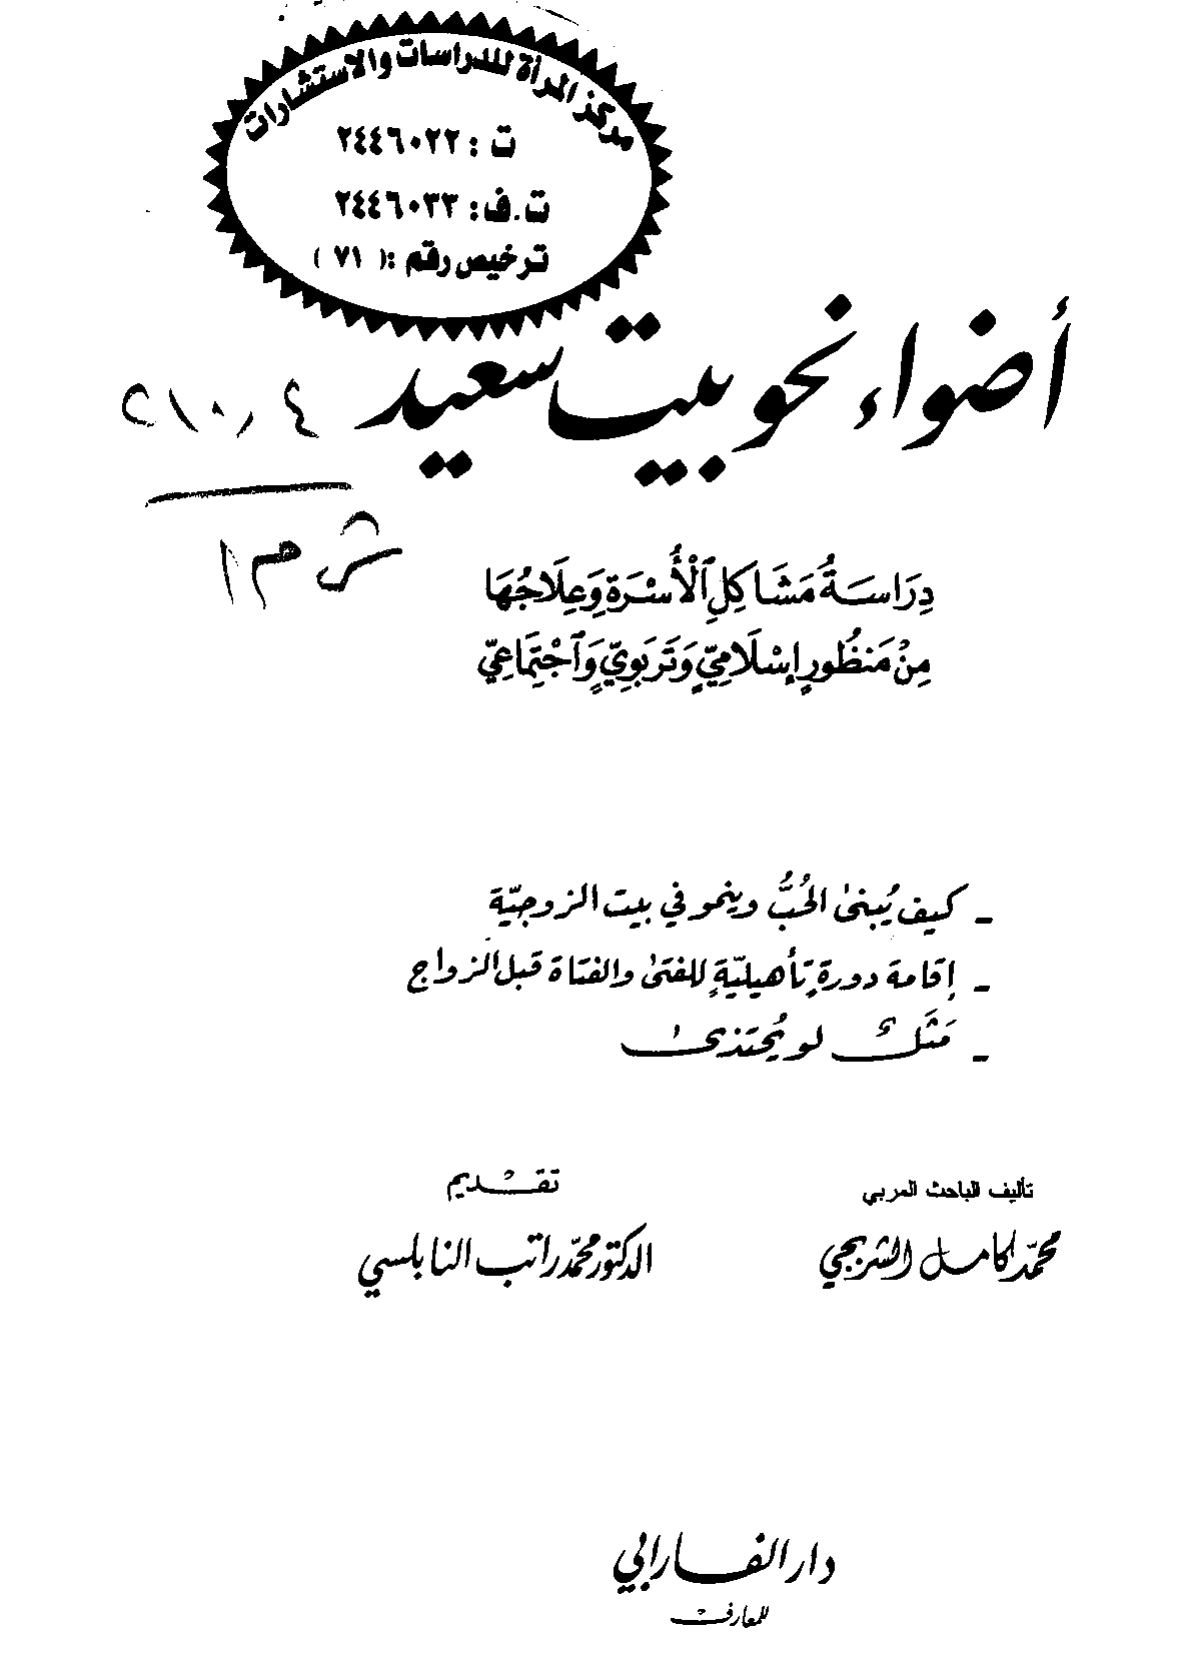 مركز المرأة للدراسات والاستشارات
ت : ٢٤٤٦٠٢٢
ت.ف: ٢٤٤٦٠٣٣
ترخيص رقم :( ٧١ )
أضواء نحو بيت سعيد
٢١٠,٤
ش ر م ا
دِرَاسَةُ مَشَاكِلِ ٱلْأُسْرَةِ وَعِلَاجُهَا
مِنْ مَنظُورٍ إِسْلَامِيٍّ وَتَرَبَوِيٍّ وَٱجْتِمَاعِيّ
- كيف يُبنىٰ الحُبُّ وينمو في بيت الزوجيّة
- إقامة دورةٍ تأهيليّةٍ للفتىٰ والفتاة قبل الزواج
- مَثَلٌ لو يُحتذىٰ
تأليف الباحث المربي
محمّد كامل الشربجي
تقْديم
الدكتور محمّد راتب النابلسي
دار الفارابي
للمعارف